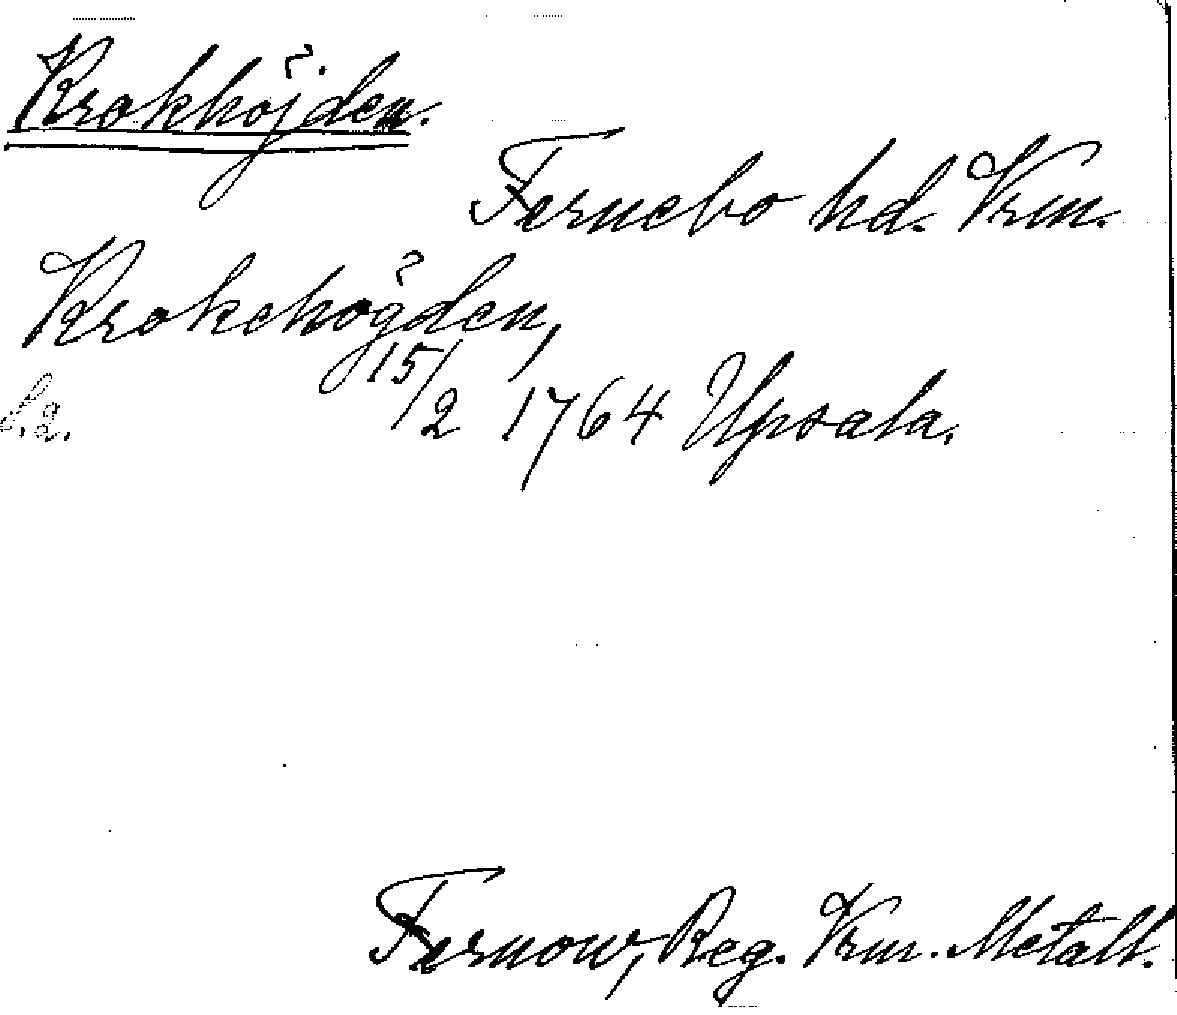 Krokhöjden.
Fernebo hd. Vrm.
Krokehögden,
15/2 1764 Upsala.
Fernow, Reg. Vrm. Metall.